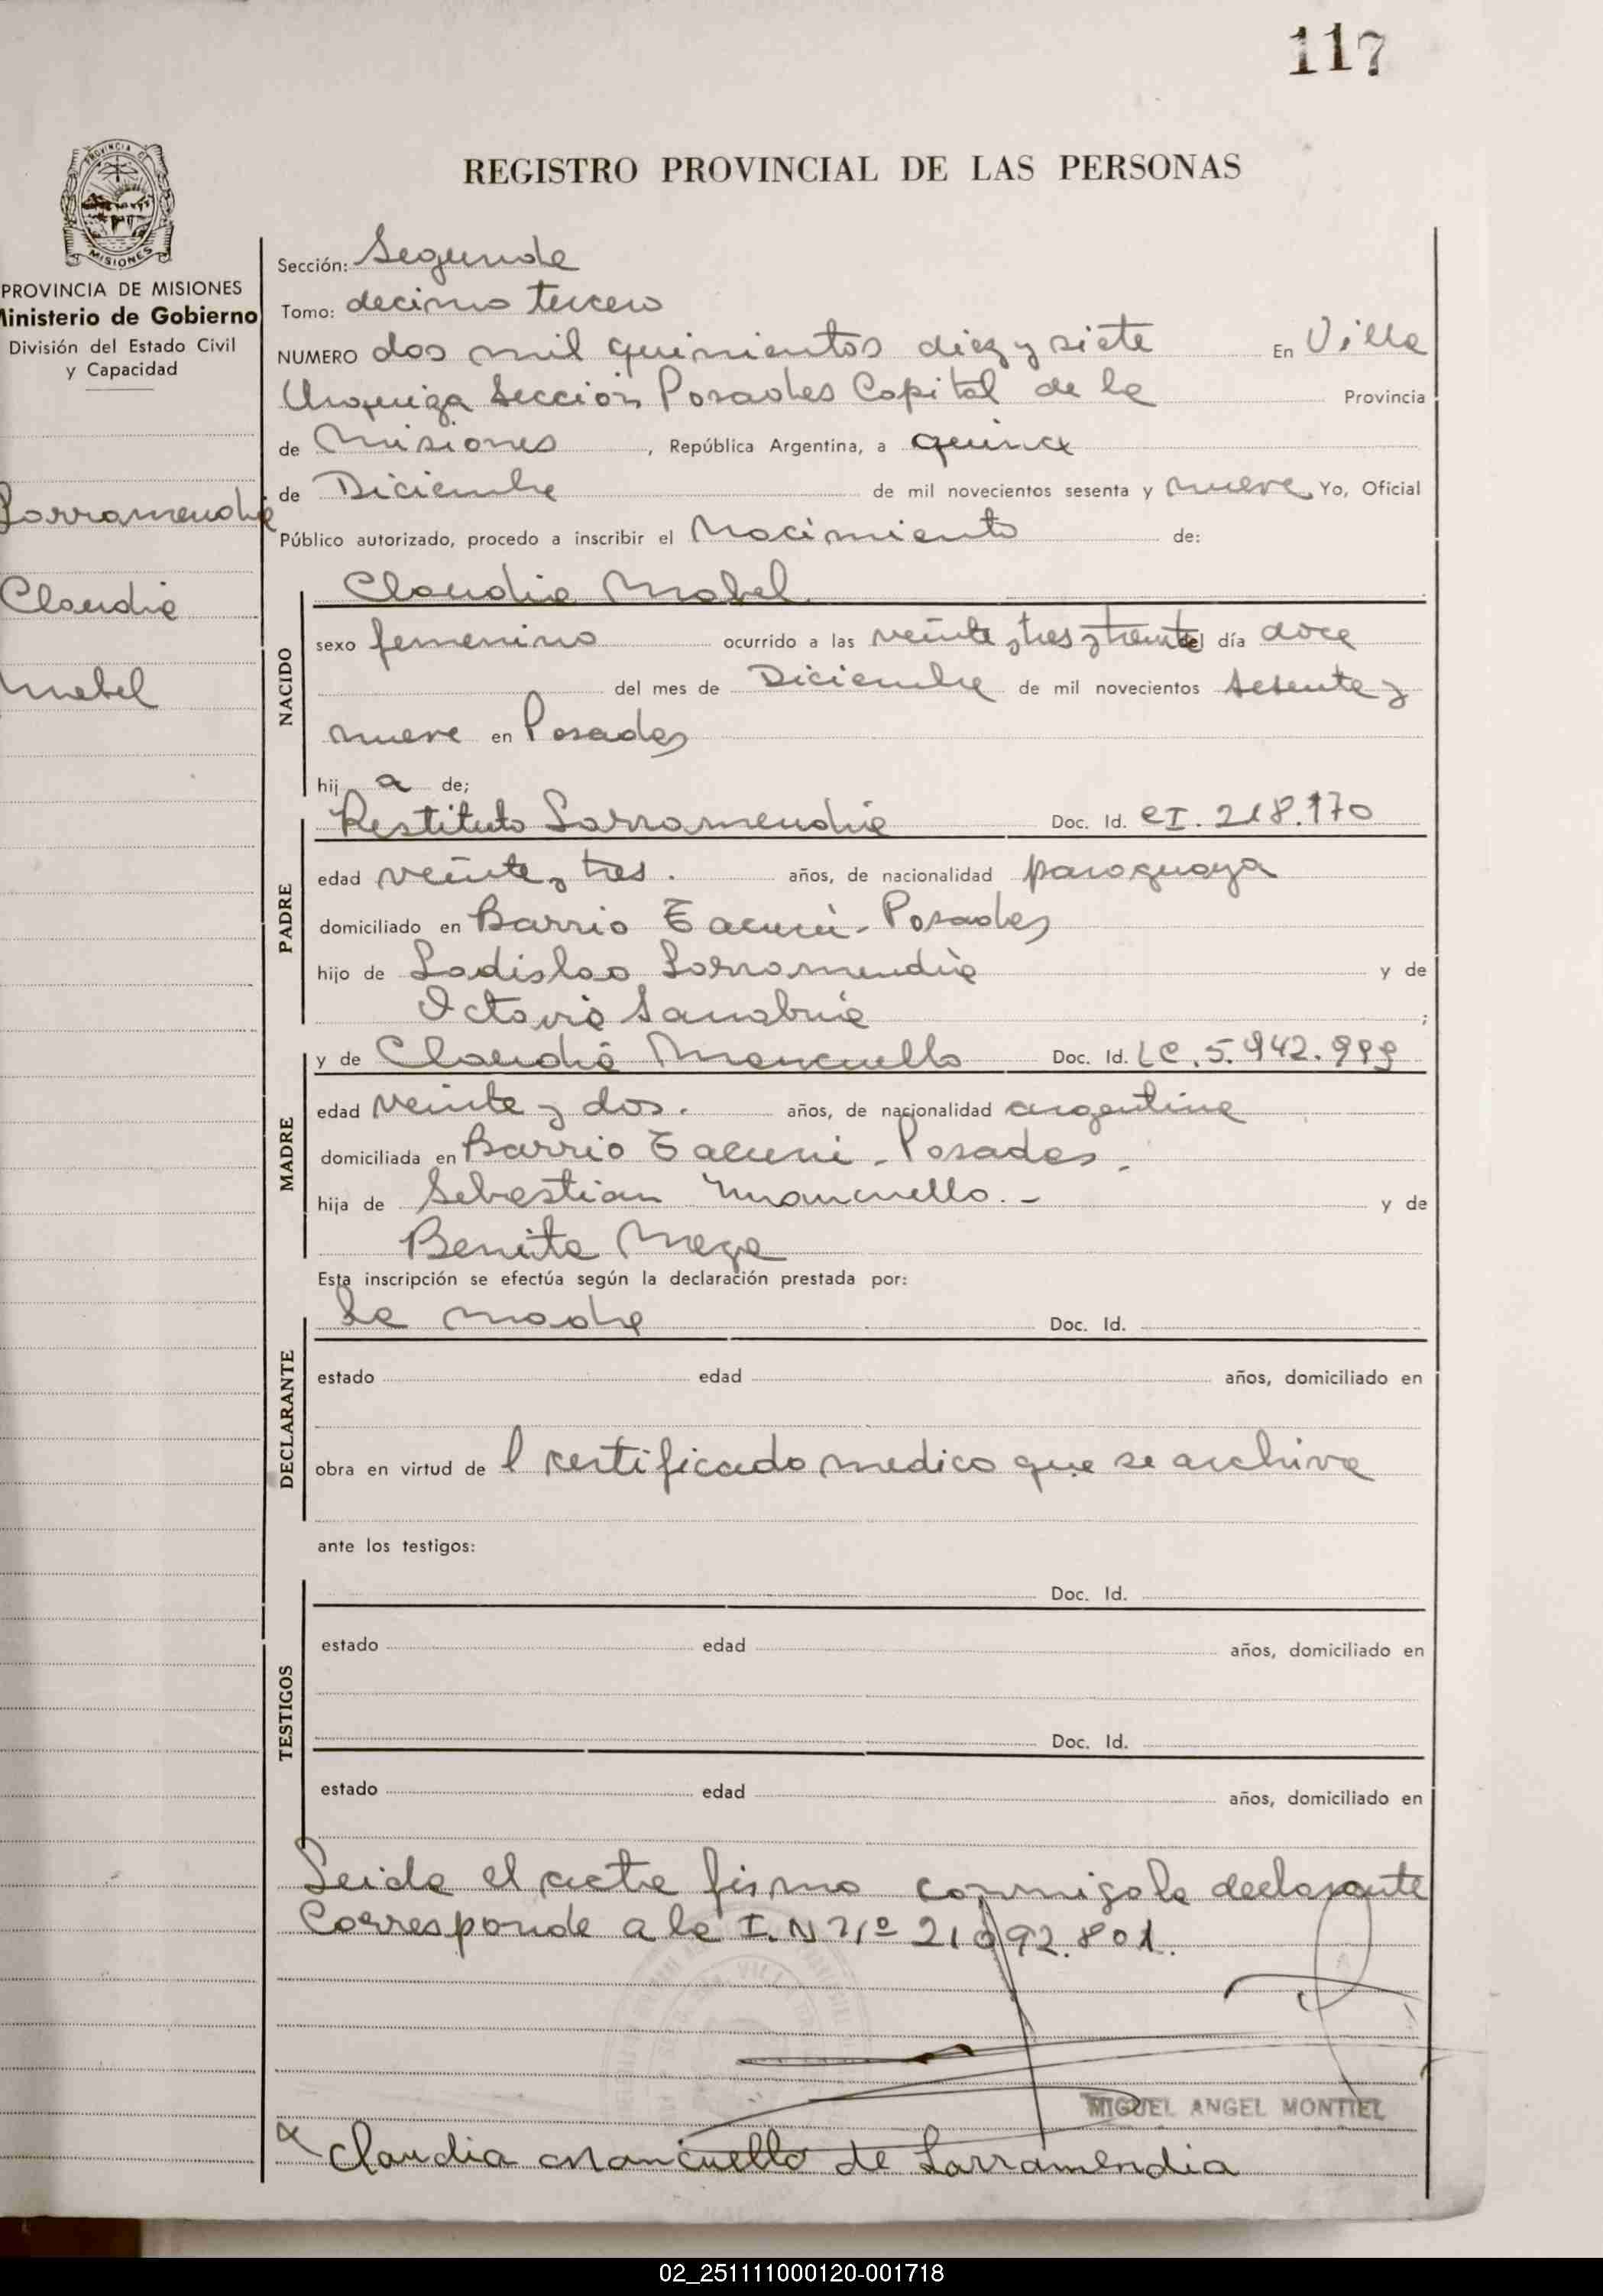 117
REGISTRO PROVINCIAL DE LAS PERSONAS
PROVINCIA DE MISIONES
PROVINCIA DE MISIONES
Ministerio de Gobierno
División del Estado Civil
y Capacidad
Larramendia
Claudia
Mabel
Sección: Segunda
Tomo: decimo tercero
NUMERO dos mil quinientos diez y siete En Villa
Urquiza Sección Posadas Capital de la Provincia
de Misiones, República Argentina, a quince
de Diciembre de mil novecientos sesenta y nueve Yo, Oficial
Público autorizado, procedo a inscribir el Nacimiento de:
NACIDO
Claudia Mabel
sexo femenino ocurrido a las veinte y tres y treinta del día doce
del mes de Diciembre de mil novecientos sesenta y
nueve en Posadas
hij a de;
PADRE
Restituto Larramendia Doc. Id. CI. 218.170
edad veinte y tres. años, de nacionalidad paraguaya
domiciliado en Barrio Tacurú - Posadas
hijo de Ladislao Larramendia y de
Octavia Sanabria ;
MADRE
y de Claudia Mancuello Doc. Id. LC. 5.942.999
edad veinte y dos. años, de nacionalidad argentina
domiciliada en Barrio Tacurú - Posadas.
hija de Sebastian Mancuello. - y de
Benita Meza
Esta inscripción se efectúa según la declaración prestada por:
DECLARANTE
la madre Doc. Id.
estado edad años, domiciliado en
obra en virtud de l certificado medico que se archiva
ante los testigos:
TESTIGOS
Doc. Id.
estado edad años, domiciliado en
Doc. Id.
estado edad años, domiciliado en
Leida el acta firmo conmigo la declarante
Corresponde a la I. N Nº 21.092.801.
MIGUEL ANGEL MONTIEL
Claudia Mancuello de Larramendia
02_251111000120-001718